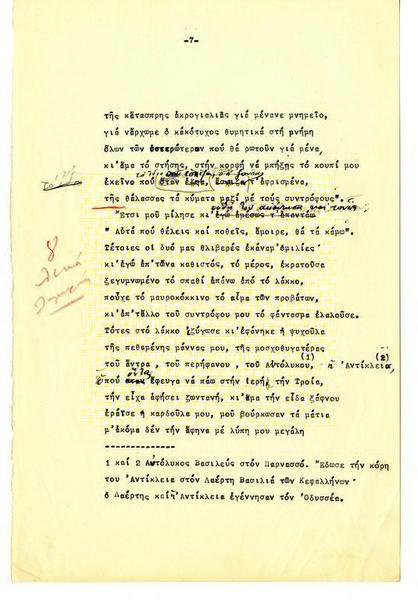 -7-
τῆς κάτασπρης ἀκρογιαλιᾶς γιά μένανε μνημεῖο,
γιά νάρχωμε ὁ κακότυχος θυμητικά στή μνήμη
ὅλων τῶν ὑστερώτερων πού θά ρωτοῦν γιά μένα,
κι'ἅμα τό στήσῃς, στήν κορφή νά μπήξῃς τό κουπί μου
ἐκεῖνο πού ὅταν ἔζησα, ἔσκιζα ἀφρισμένα,
τῆς θάλασσας τά κύματα μαζί μέ τούς συντρόφους".
"Ετσι μοῦ μίλησε κι'ἐγώ ἀμέσως τ'ἀπαντάω
" Αὐτά πού θέλεις καί ποθεῖς, ἄμοιρε, θά τά κάμω".
Τέτοιες οἱ δυό μας θλιβερές ἐκάναμ'ὁμιλίες
κι'ἐγώ ἀπ'τἄνα καθιστός, τό μέρος, ἐκρατοῦσα
ξεγυμνωμένο τό σπαθί ἀπάνω ἀπό τό λάκκο,
ποὖχε τό μαυροκόκκινο τό αἷμα τῶν προβάτων,
κι'ἀπ'τἄλλο τοῦ συντρόφου μου τό φάντασμα ἐλαλοῦσε.
Τότες στό λάκκο ἐζύγωσε κι'ἐφάνηκε ἡ ψυχοῦλα
τῆς πεθαμένης μάννας μου, τῆς μοσχοθυγατέρας
τοῦ ἄντρα , τοῦ περήφανου , τοῦ Αὐτόλυκου,(1) ἡ Ἀντίκλεια,(2)
ὁπού ἔφευγα νά πάω στήν ἱερή τήν Τροία,
τήν εἶχα ἀφήσει ζωντανή, κι'ἅμα τήν εἶδα ξάφνου
ἐράϊσε ἡ καρδοῦλα μου, μοῦ βούρκωσαν τά μάτια
μ'ἀκόμα δέν τήν ἄφηνα μέ λύπη μου μεγάλη
1 καί 2 Αὐτόλυκος Βασιλεύς στόν Παρνασσό. "Εδωσε τήν κόρη
του Ἀντίκλεια στόν Λαέρτη Βασιλιά τῶν Κεφαλλήνων
ὁ Λαέρτης καί ἡ Ἀντίκλεια ἐγέννησαν τόν Ὀδυσσέα.